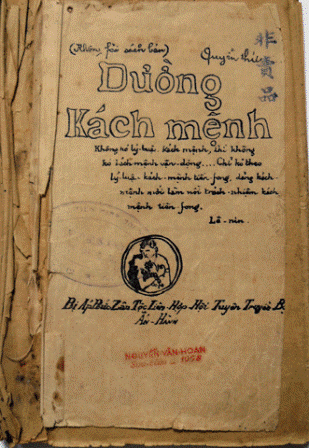 (Không fải sách bán) Quyển thứ
非賣品
Đường
Kách mệnh
Không có lý-luận kách mệnh, thì không
có kách mệnh vận-động.... Chỉ có theo
lý-luận kách-mệnh tiền fong, đảng kách-
mệnh mới làm nổi trách-nhiệm kách
mệnh tiền fong.
Lê-nin.
Bị Áp Bức Zân Tộc Liên Hợp Hội Tuyên Truyền Bộ
Ấn-Hành
NGUYỄN-VĂN-HOAN
1958